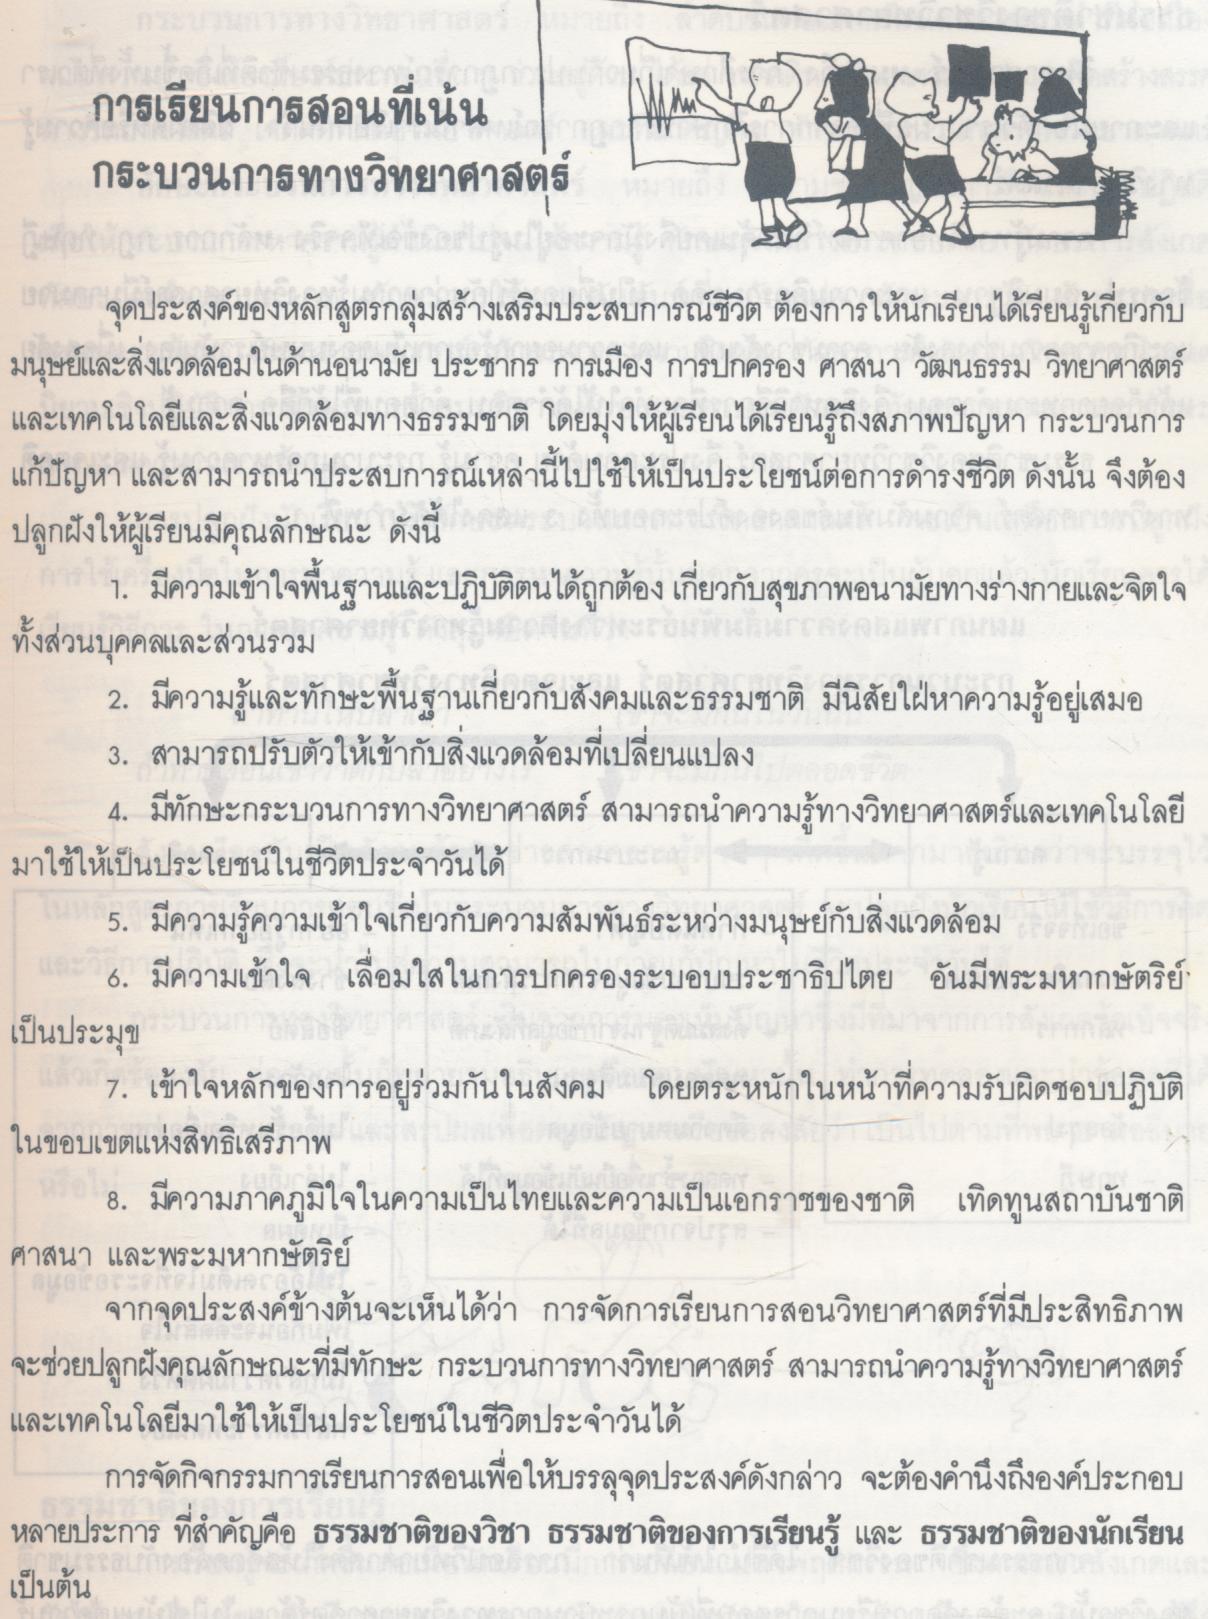 การเรียนการสอนที่เน้น
กระบวนการทางวิทยาศาสตร์
จุดประสงค์ของหลักสูตรกลุ่มสร้างเสริมประสบการณ์ชีวิต ต้องการให้นักเรียนได้เรียนรู้เกี่ยวกับ
มนุษย์และสิ่งแวดล้อมในด้านอนามัย ประชากร การเมือง การปกครอง ศาสนา วัฒนธรรม วิทยาศาสตร์
และเทคโนโลยีและสิ่งแวดล้อมทางธรรมชาติ โดยมุ่งให้ผู้เรียนได้เรียนรู้ถึงสภาพปัญหา กระบวนการ
แก้ปัญหา และสามารถนำประสบการณ์เหล่านี้ไปใช้ให้เป็นประโยชน์ต่อการดำรงชีวิต ดังนั้น จึงต้อง
ปลูกฝังให้ผู้เรียนมีคุณลักษณะ ดังนี้
1. มีความเข้าใจพื้นฐานและปฏิบัติตนได้ถูกต้อง เกี่ยวกับสุขภาพอนามัยทางร่างกายและจิตใจ
ทั้งส่วนบุคคลและส่วนรวม
2. มีความรู้และทักษะพื้นฐานเกี่ยวกับสังคมและธรรมชาติ มีนิสัยใฝ่หาความรู้อยู่เสมอ
3. สามารถปรับตัวให้เข้ากับสิ่งแวดล้อมที่เปลี่ยนแปลง
4. มีทักษะกระบวนการทางวิทยาศาสตร์ สามารถนำความรู้ทางวิทยาศาสตร์และเทคโนโลยี
มาใช้ให้เป็นประโยชน์ในชีวิตประจำวันได้
5. มีความรู้ความเข้าใจเกี่ยวกับความสัมพันธ์ระหว่างมนุษย์กับสิ่งแวดล้อม
6. มีความเข้าใจ เลื่อมใสในการปกครองระบอบประชาธิปไตย อันมีพระมหากษัตริย์
เป็นประมุข
7. เข้าใจหลักของการอยู่ร่วมกันในสังคม โดยตระหนักในหน้าที่ความรับผิดชอบปฏิบัติ
ในขอบเขตแห่งสิทธิเสรีภาพ
8. มีความภาคภูมิใจในความเป็นไทยและความเป็นเอกราชของชาติ เทิดทูนสถาบันชาติ
ศาสนา และพระมหากษัตริย์
จากจุดประสงค์ข้างต้นจะเห็นได้ว่า การจัดการเรียนการสอนวิทยาศาสตร์ที่มีประสิทธิภาพ
จะช่วยปลูกฝังคุณลักษณะที่มีทักษะ กระบวนการทางวิทยาศาสตร์ สามารถนำความรู้ทางวิทยาศาสตร์
และเทคโนโลยีมาใช้ให้เป็นประโยชน์ในชีวิตประจำวันได้
การจัดกิจกรรมการเรียนการสอนเพื่อให้บรรลุจุดประสงค์ดังกล่าว จะต้องคำนึงถึงองค์ประกอบ
หลายประการ ที่สำคัญคือ ธรรมชาติของวิชา ธรรมชาติของการเรียนรู้ และ ธรรมชาติของนักเรียน
เป็นต้น